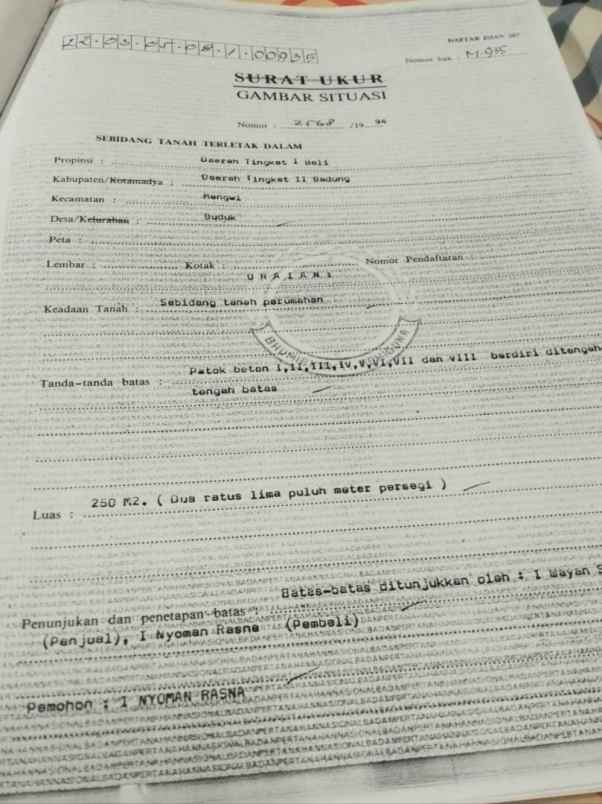 DAFTAR ISIAN 207
22.03.05.08.1.00935
Nomor hak : M.935
SURAT UKUR
GAMBAR SITUASI
Nomor : 2568 /19 94
SEBIDANG TANAH TERLETAK DALAM
Propinsi : Daerah Tingkat I Bali
Kabupaten/Kotamadya : Daerah Tingkat II Badung
Kecamatan : Mengwi
Desa/Kelurahan : Buduk
Peta :
Lembar : Kotak : Nomor Pendaftaran :
URAIAN
Keadaan Tanah : Sebidang tanah perumahan
Tanda-tanda batas : Patok beton I,II,III,IV,V,VI,VII dan VIII berdiri ditengah
tengah batas
Luas : 250 M2. ( Dua ratus lima puluh meter persegi )
Penunjukan dan penetapan batas : Batas-batas ditunjukkan oleh : I Wayan S
(Penjual), I Nyoman Rasna (Pembeli)
Pemohon : I NYOMAN RASNA